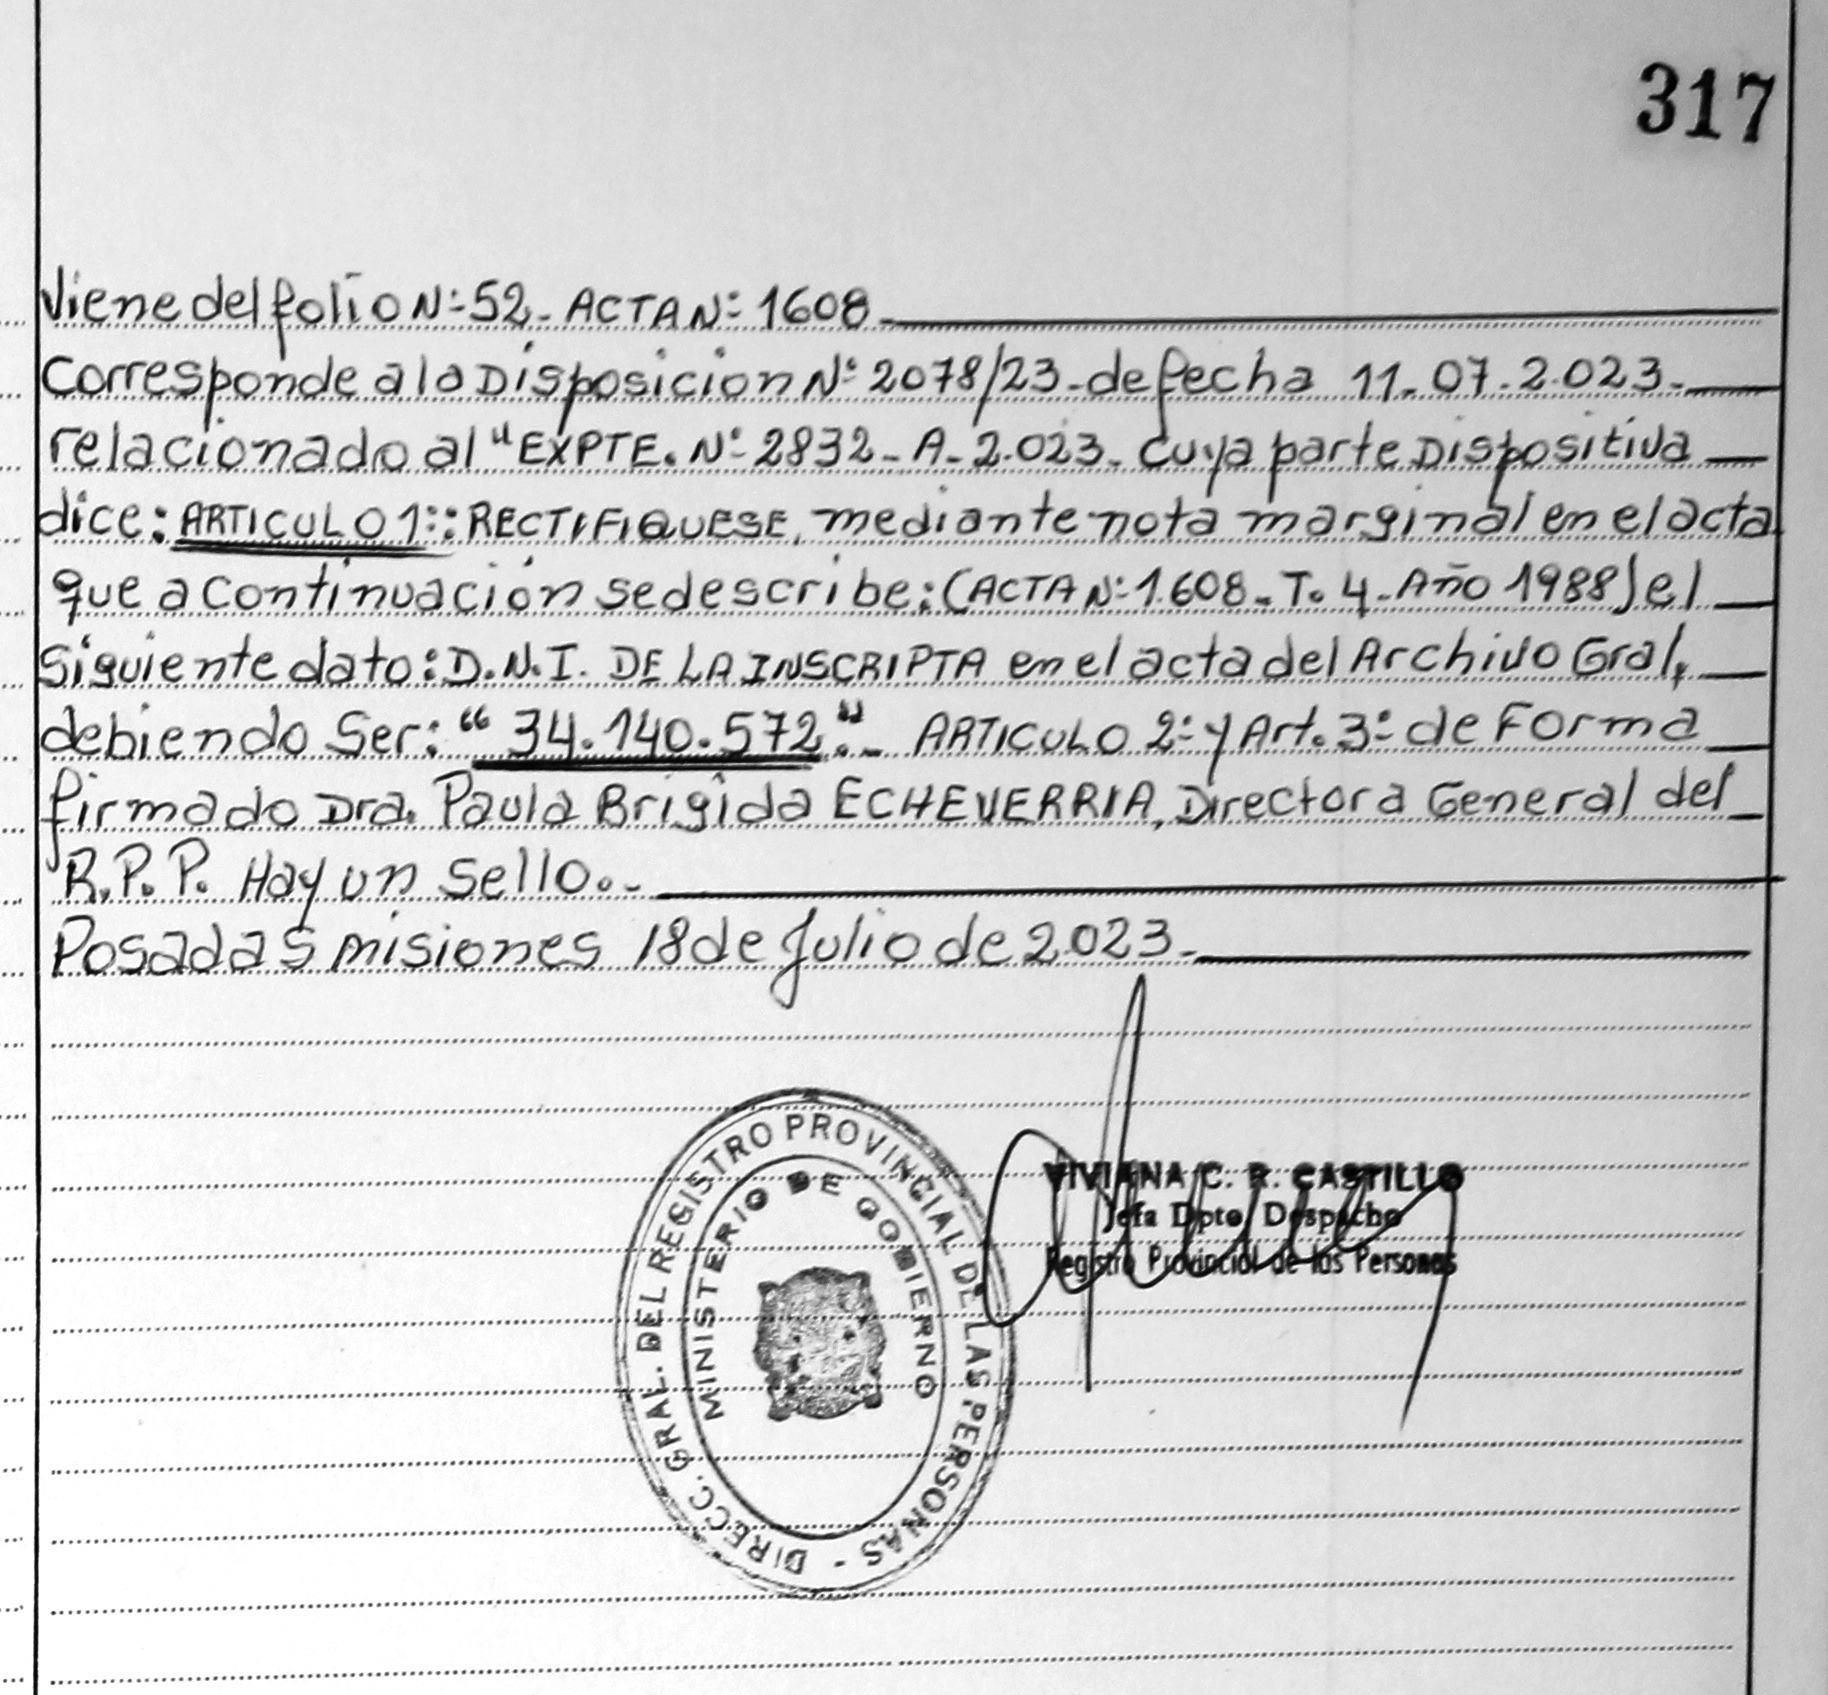 317
Viene del folio Nº 52 - ACTA Nº 1608 -
Corresponde a la Disposicion Nº 2078/23 - de fecha 11-07-2.023 -
relacionado al "EXPTE. Nº 2832 - A - 2.023 - cuya parte Dispositiva
dice: ARTICULO 1º: RECTIFIQUESE, mediante nota marginal en el acta
que a continuación se describe: (ACTA Nº 1.608 - T. 4 - Año 1988) el
siguiente dato: D.N.I. DE LA INSCRIPTA en el acta del Archivo Gral,
debiendo Ser: "34.140.572". - ARTICULO 2º y Art. 3º de Forma
firmado Dra. Paula Brigida ECHEVERRIA, Directora General del
R.P.P. Hay un Sello. -
Posadas misiones 18 de Julio de 2.023 -
DIRECC. GRAL. DEL REGISTRO PROVINCIAL DE LAS PERSONAS -
MINISTERIO DE GOBIERNO
VIVIANA C. R. CASTILLO
Jefa Dpto. Despacho
Registro Provincial de las Personas